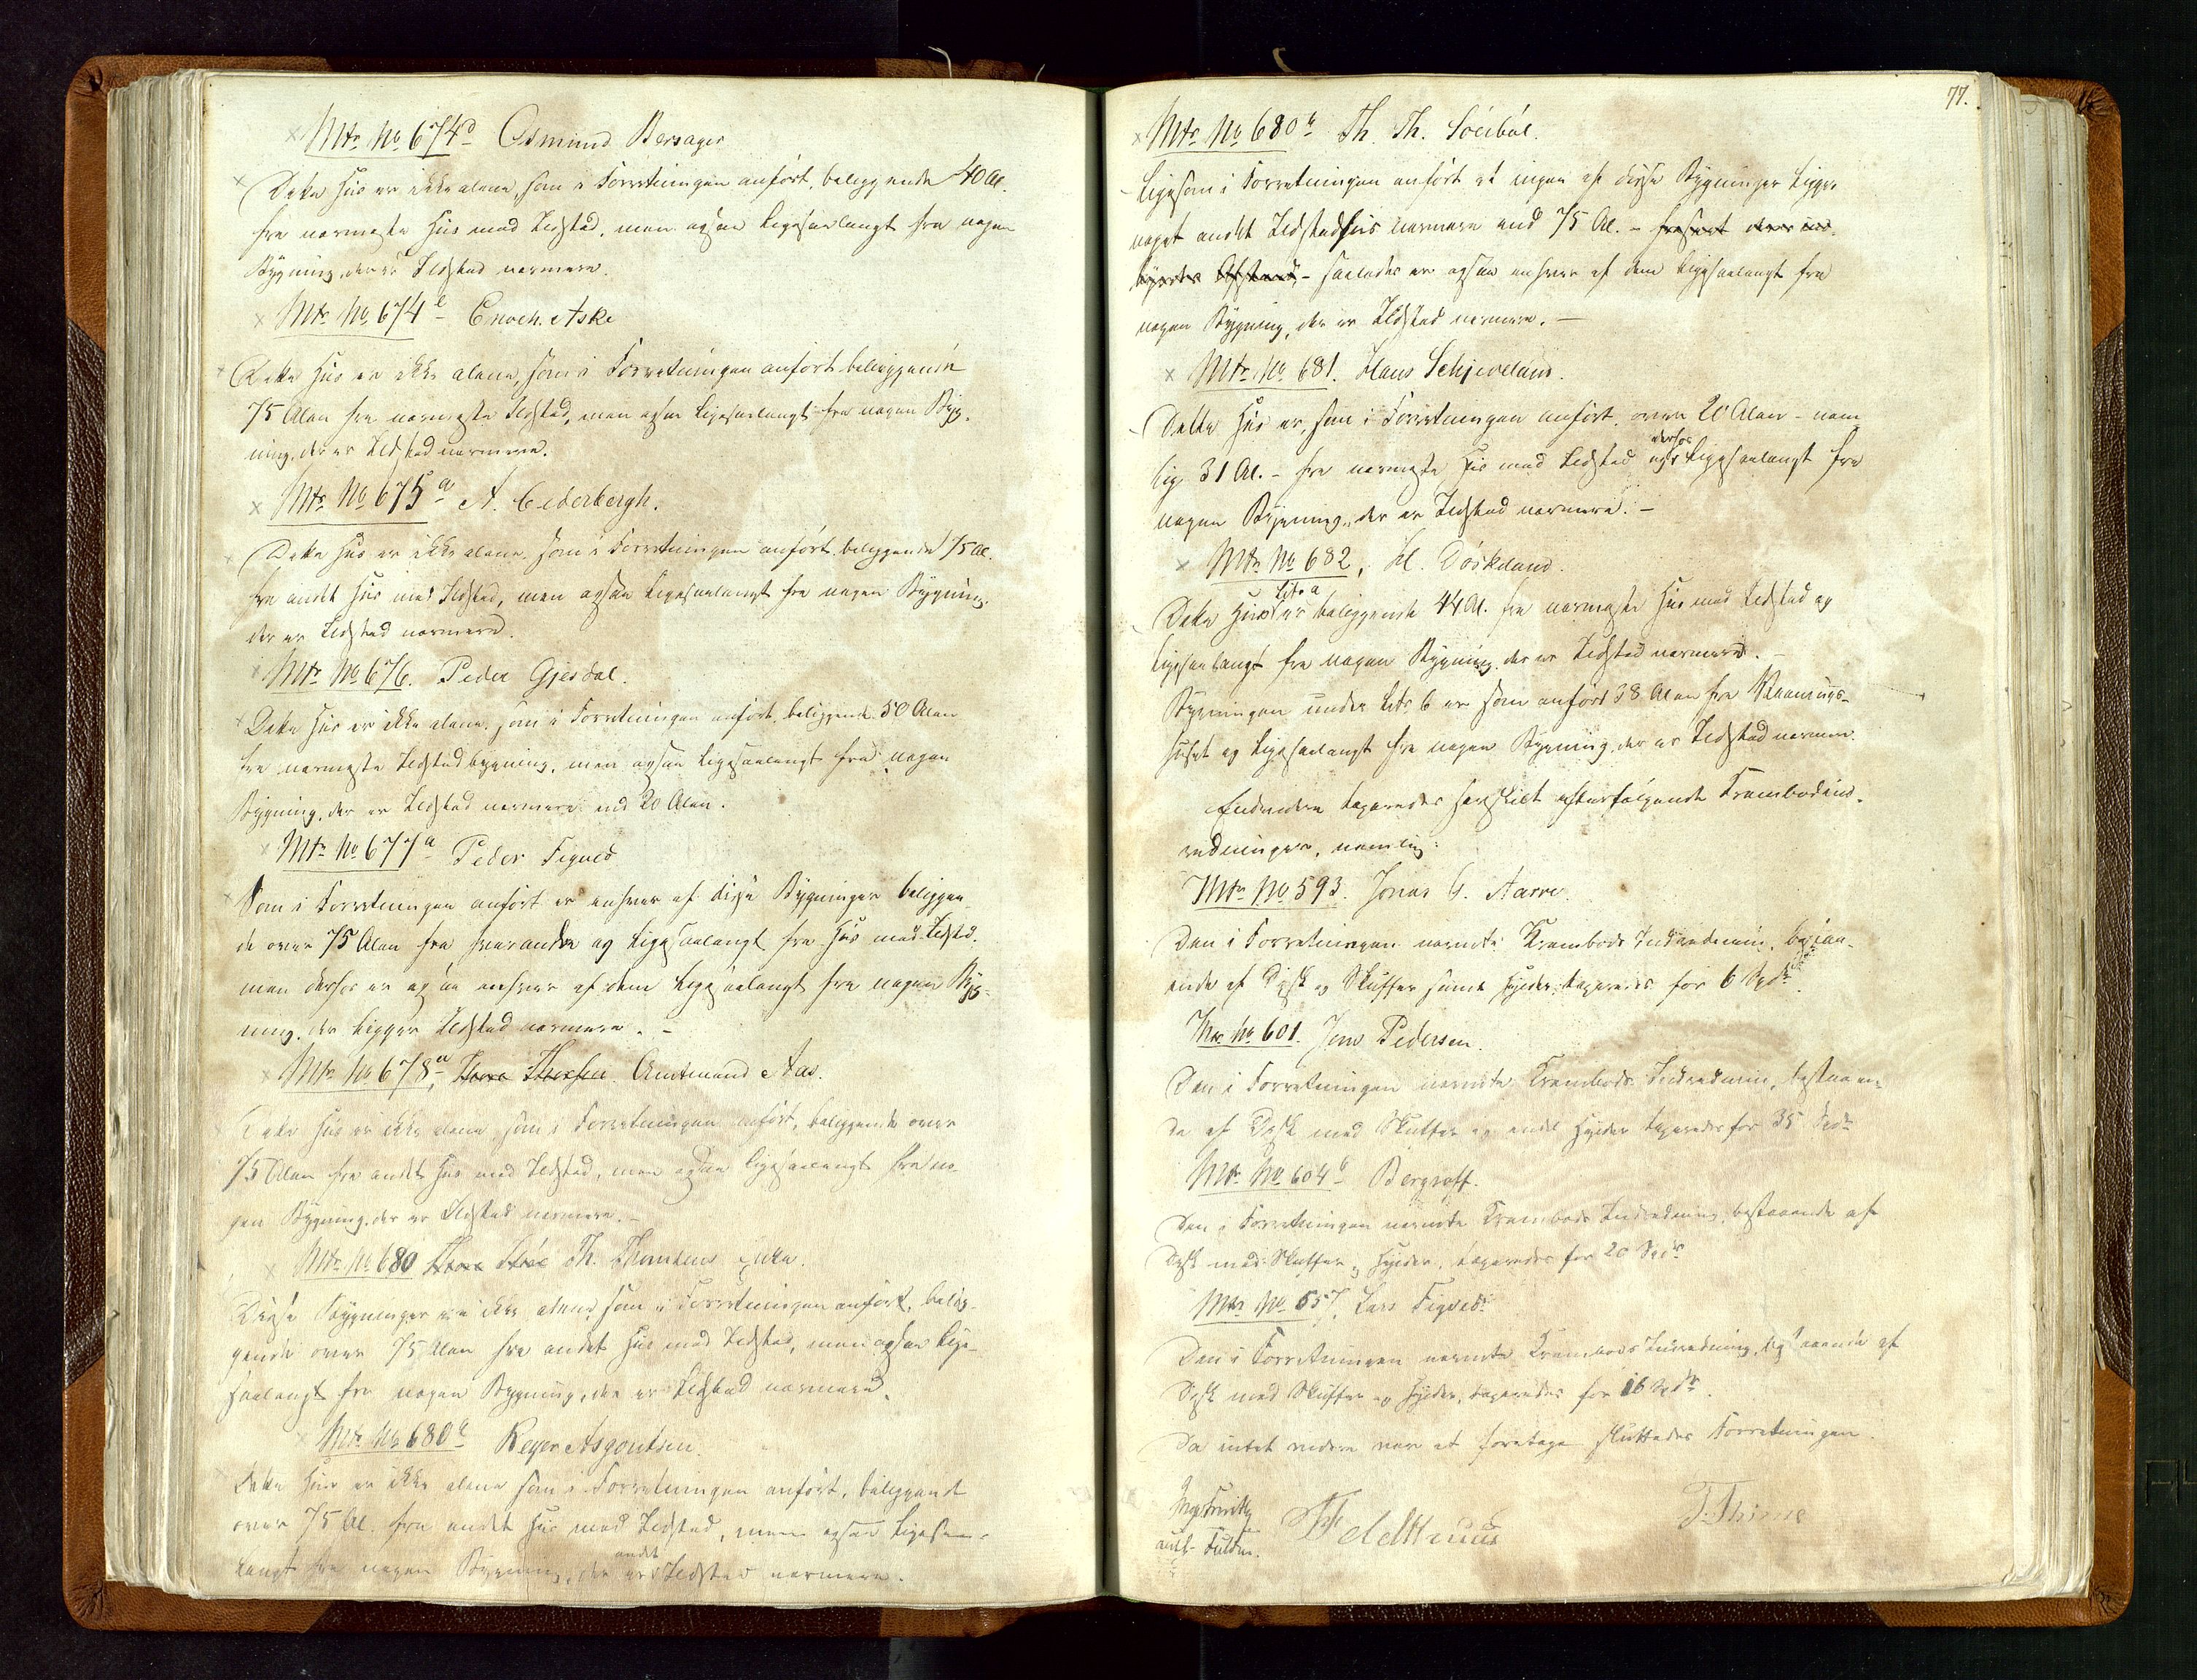 Mtr No 674d Osmund Bersager
Dette Huus er ikke alene, som i Forretningen anført, beliggende 40 Al.
fra nærmeste Huus med Ildsted, men ogsaa ligesaalangt fra nogen
Bygning, der er Ildsted nærmere.
Mtr No 674e Enoch Aske
Dette Huus er ikke alene, som i Forretningen anført beliggende
75 Alen fra nærmeste Ildsted, men ogsaa ligesaalangt fra nogen Byg-
ning, der er Ildsted nærmere.
Mtr No 675a A. Cederbergh.
Dette Huus er ikke alene, som i Forretningen anført, beliggende 75 Al.
fra andet Huus med Ildsted, men ogsaa ligesaalangt fra nogen Bygning,
der er Ildsted nærmere.
Mtr No 676. Peder Gjesdal.
Dette Huus er ikke alene, som i Forretningen anført, beliggende 50 Alen
fra nærmeste Ildstedbygning, men ogsaa ligesaalangt fra nogen
Bygning, der er Ildsted nærmere end 20 Alen.
Mtr No 677a Peder Figved
Som i Forretningen anført er enhver af disse Bygninger beliggen-
de over 75 Alen fra hverandre og ligesaalangt fra Huus med Ildsted,
men derhos er ogsaa enhver af dem ligesaalangt fra nogen Byg-
ning, der ligger Ildsted nærmere. -
Mtr No 678a, Amtmand Aas.
Dette Huus er ikke alene, som i Forretningen anført, beliggende over
75 Alen fra andet Huus med Ildsted, men ogsaa ligesaalangt fra no-
gen Bygning, der er Ildsted nærmere. -
Mtr No 680 Th. Thorstens Enke.
Disse Bygninger ere ikke alene, som i Forretningen anført, belig-
gende over 75 Alen fra andet Huus med Ildsted, men ogsaa lige-
saalangt fra nogen Bygning, der er Ildsted nærmere.
Mtr No 680a Reyer Asgautsen.
Dette Huus er ikke alene som i Forretningen anført, beliggende
over 75 Al. fra andet Huus med Ildsted, men ogsaa ligesaa-
langt fra nogen Bygning, der er andet Ildsted nærmere.
77.
Mtr No 680b Th. Th. Søeibøl.
Ligesom i Forretningen anført at ingen af disse Bygninger ligger
noget andet Ildstedhuus nærmere end 75 Al. -
- saaledes er ogsaa enhver af dem ligesaalangt fra
nogen Bygning, der er Ildsted nærmere. -
Mtr No 681. Hans Schjeveland.
Dette Huus er, som i Forretningen anført, over 20 Alen - nem-
lig 31 Al. - fra nærmeste Huus med Ildsted og derhos ligesaalangt fra
nogen Bygning, der er Ildsted nærmere. -
Mtr No 682, Kl. Døskeland.
Dette Huus Litr a er beliggende 44 Al. fra nærmeste Huus med Ildsted og
ligesaalangt fra nogen Bygning, der er Ildsted nærmere. -
Bygningen under Litr b er som anført 38 Alen fra Vaanings-
huset og ligesaalangt fra nogen Bygning, der er Ildsted nærmere.
Endvidere taxeredes særskilt efterfølgende Krambodind-
redninger, nemlig:
Mtr No 593. Jonas G. Aarre.
Den i Forretningen nævnte Krambods Indredning, bestaa-
ende af Disk og Skuffer samt Hylder, taxeredes for 6 Spd.
Mtr No 601. Jens Pedersen.
Den i Forretningen nævnte Krambods Indredning, bestaaen-
de af Disk med Skuffer og endel Hylder taxeredes for 35 Spdr
Mtr No 604b Bergtoff.
Den i Forretningen nævnte Krambods Indredning, bestaaende af
Disk med Skuffer og Hylder, taxeredes for 20 Spdr
Mtr No 657, Lars Figved
Den i Forretningen nævnte Krambods Indredning, bestaaende af
Disk med Skuffer og Hylder, taxeredes for 16 Spdr.
Da intet videre var at foretage sluttedes Forretningen.
auth. Fuldm.
T. Thime